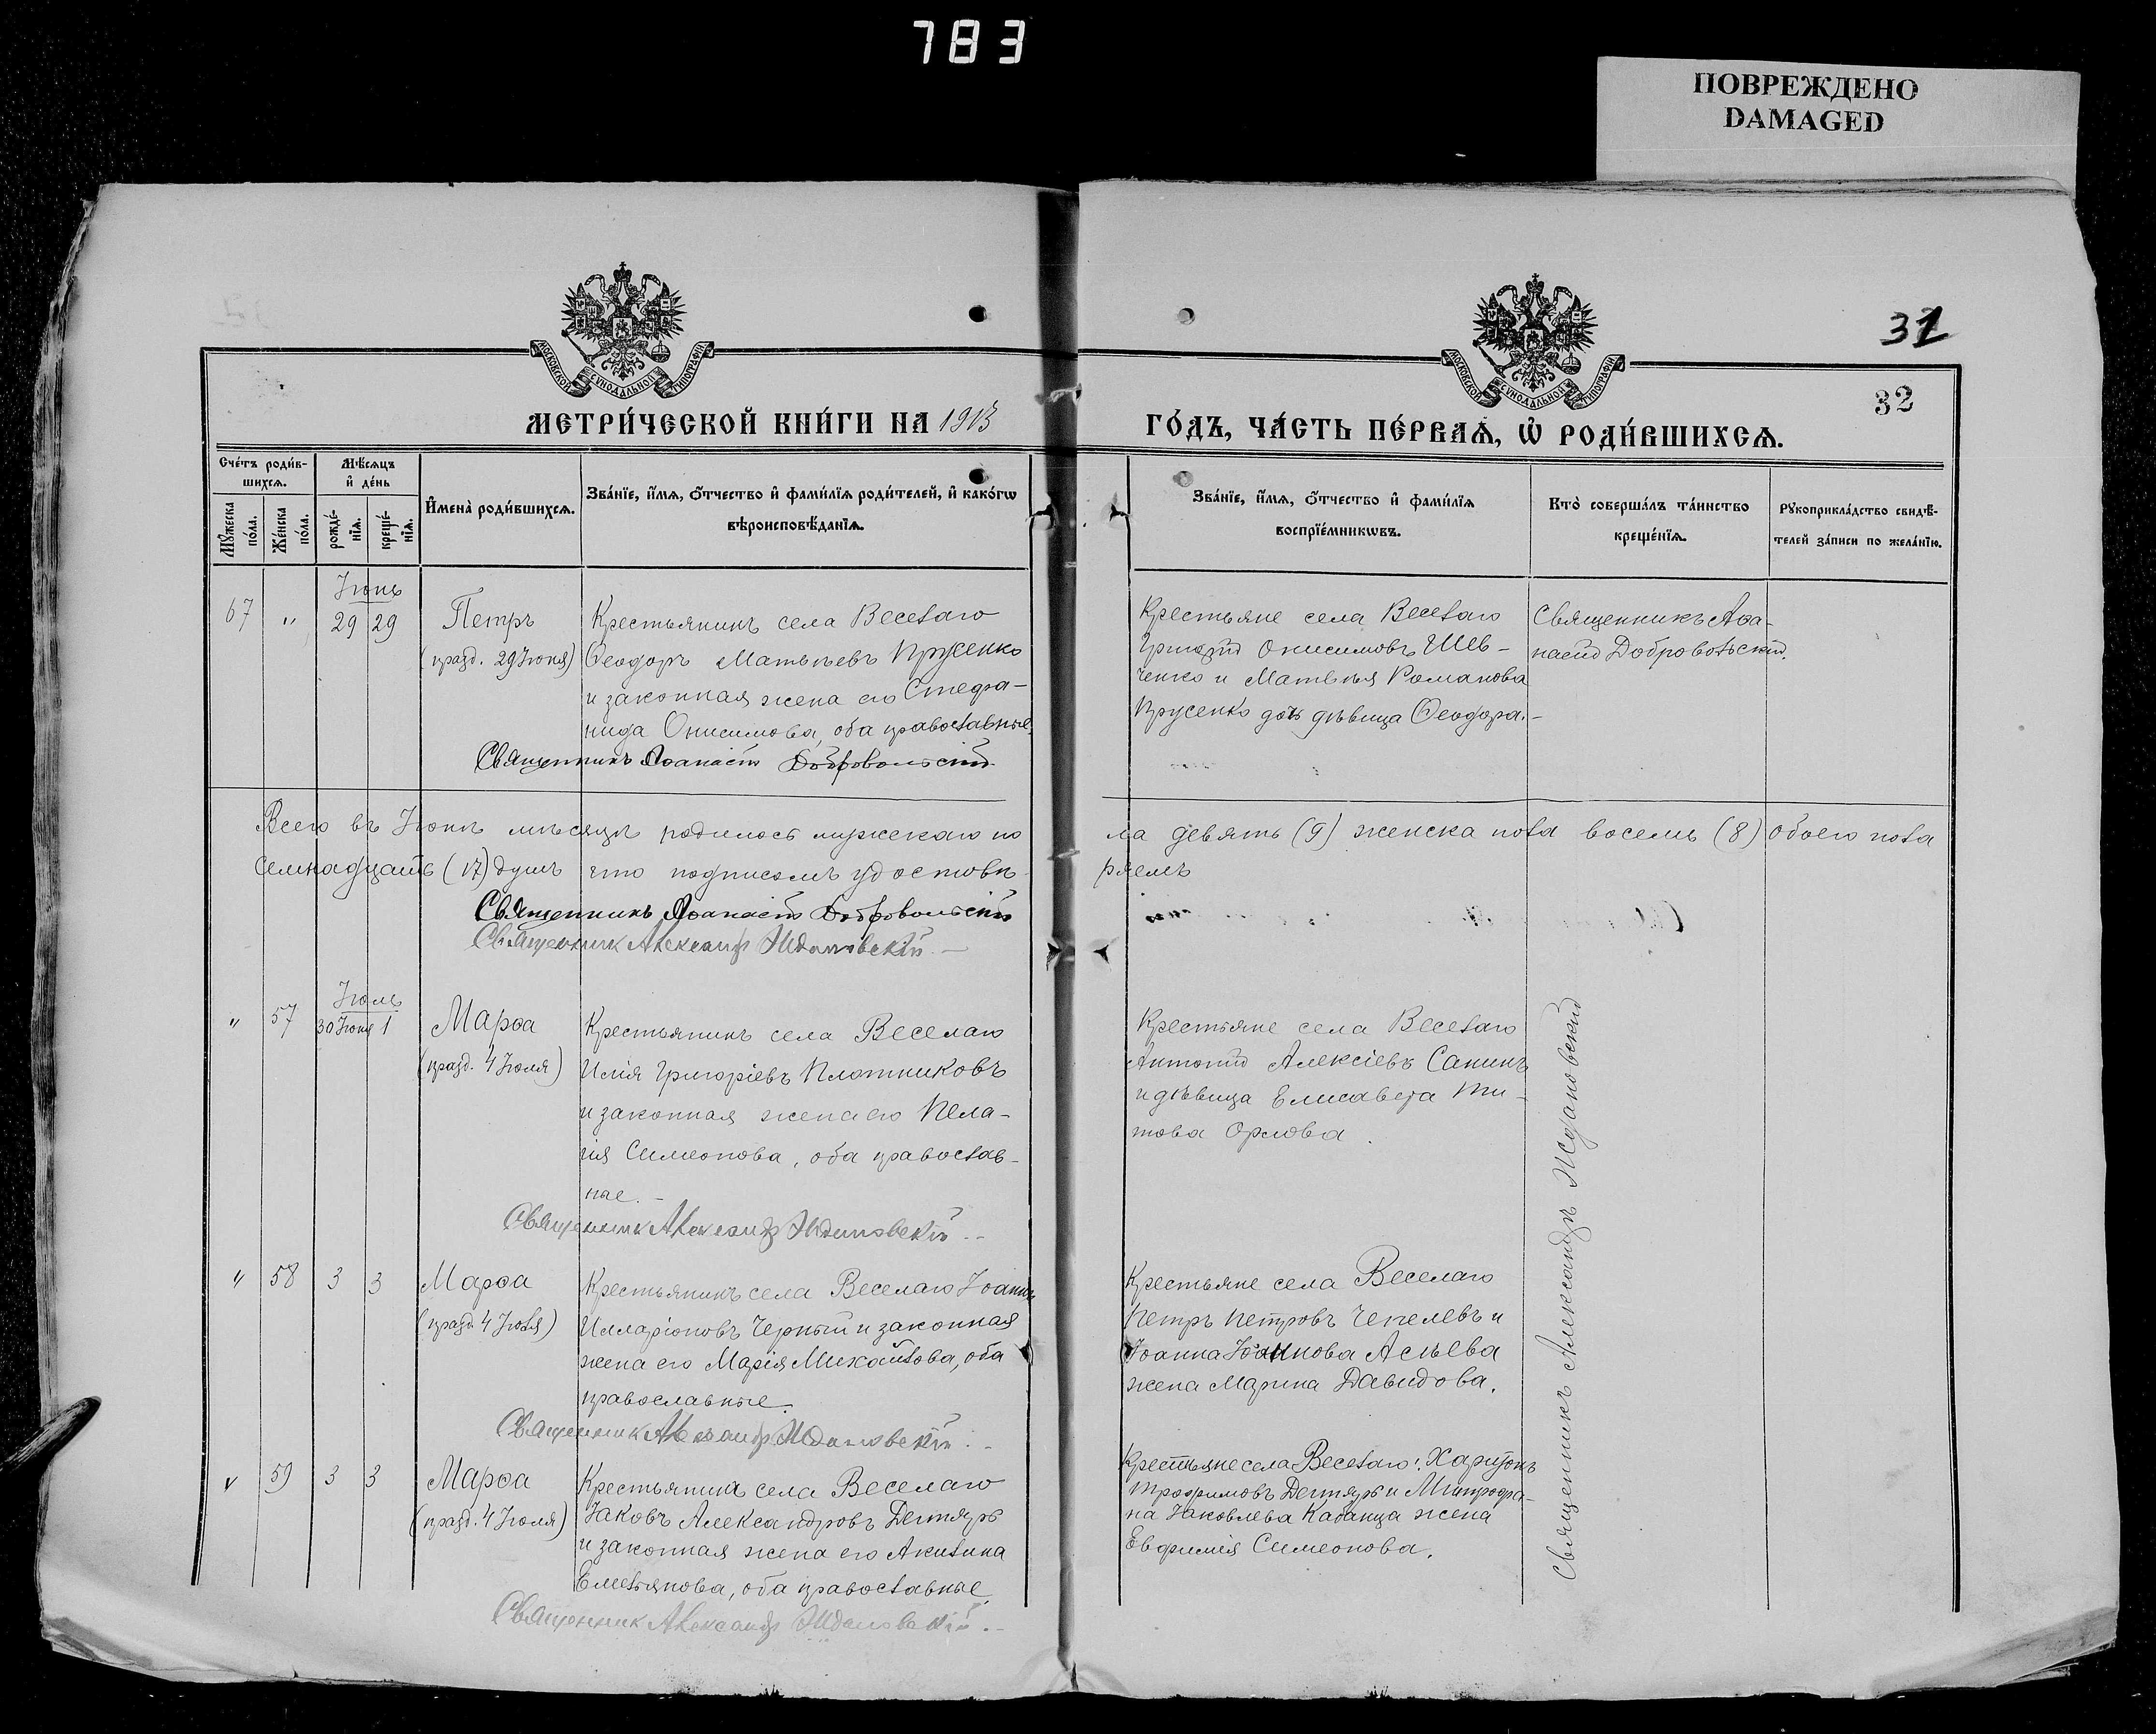 783
ПОВРЕЖДЕНО
DAMAGED
31
32
МОСКОВСКОЙ СѴНОДАЛЬНОЙ ТИПОГРАФІИ
МОСКОВСКОЙ СѴНОДАЛЬНОЙ ТИПОГРАФІИ
МЕТРИ́ЧЕСКОЙ КНИ́ГИ НА 1913
ГО́ДЪ, ЧА́СТЬ ПЕ́РВАѦ, Ѡ҆ РОДИ́ВШИХСѦ.
Сче́тъ роди́в-
шихсѧ.
Мꙋ́жеска
по́ла.
Же́нска
по́ла.
Мѣ́сѧцъ
и҆ де́нь
рожде́-
нїѧ.
креще́-
нїѧ.
И҆мена̀ роди́вшихсѧ.
Зва́нїе, и҆́мѧ, ѻ҆́тчество и҆ фами́лїѧ роди́телей, и҆ како́гѡ
вѣроисповѣ́данїѧ.
Зва́нїе, и҆́мѧ, ѻ҆́тчество и҆ фами́лїѧ
воспрїе́мникѡвъ.
Кто̀ соверша́лъ та́инство
креще́нїѧ.
Рꙋкоприкла́дство свидѣ́-
телей за́писи по жела́нїю.
Іюнь
67 " 29 29 Петръ
(празд. 29 Іюня)
Крестьянинъ села Веселаго
Ѳеодоръ Матвѣевъ Прусенко
и законная жена его Стефа-
нида Онисимова, оба православные.
Священникъ Аѳанасій Добровольскій
Крестьяне села Веселаго
Григорій Онисимовъ Шев-
ченко и Матвѣя Романова
Прусенко дочь дѣвица Ѳеодора.-
Священникъ Аѳа-
насій Добровольскій.
Всего въ Іюнѣ мѣсяцѣ родилось мужескаго по
ла девять (9) женска пола восемь (8) обоего пола
семнадцать (17) душъ что подписомъ удостовѣ
ряемъ
Священникъ Аѳанасій Добровольскій
Священник Александр Ждановскій.-
Іюль
" 57 30 Іюня 1 Марѳа
(празд. 4 Іюля)
Крестьянинъ села Веселаго
Илія Григоріевъ Плотниковъ
и законная жена его Пела-
гія Симеонова, оба православ-
ные.-
Священник Александр Ждановскій.-
Крестьяне села Веселаго
Антоній Алексіевъ Санинъ
и дѣвица Елисавета Ти-
това Орлова.
Священникъ Александръ Ждановскій
" 58 3 3 Марѳа
(празд. 4 Іюля)
Крестьянинъ села Веселаго Іоаннъ
Илларіоновъ Черный и законная
жена его Марія Михайлова, оба
православные.
Священник Александр Ждановскій.-
Крестьяне села Веселаго
Петръ Петровъ Чепелевъ и
Іоанна Іоаннова Асѣева
жена Марина Давидова.
" 59 3 3 Марѳа
(празд. 4 Іюля)
Крестьянинъ села Веселаго
Іаковъ Александровъ Дегтярь
и законная жена его Акилина
Емельянова, оба православные.
Священник Александр Ждановскій.-
Крестьяне села Веселаго: Харитонъ
Трофимовъ Дегтярь и Митрофа-
на Іаковлева Кабанца жена
Евфимія Симеонова.